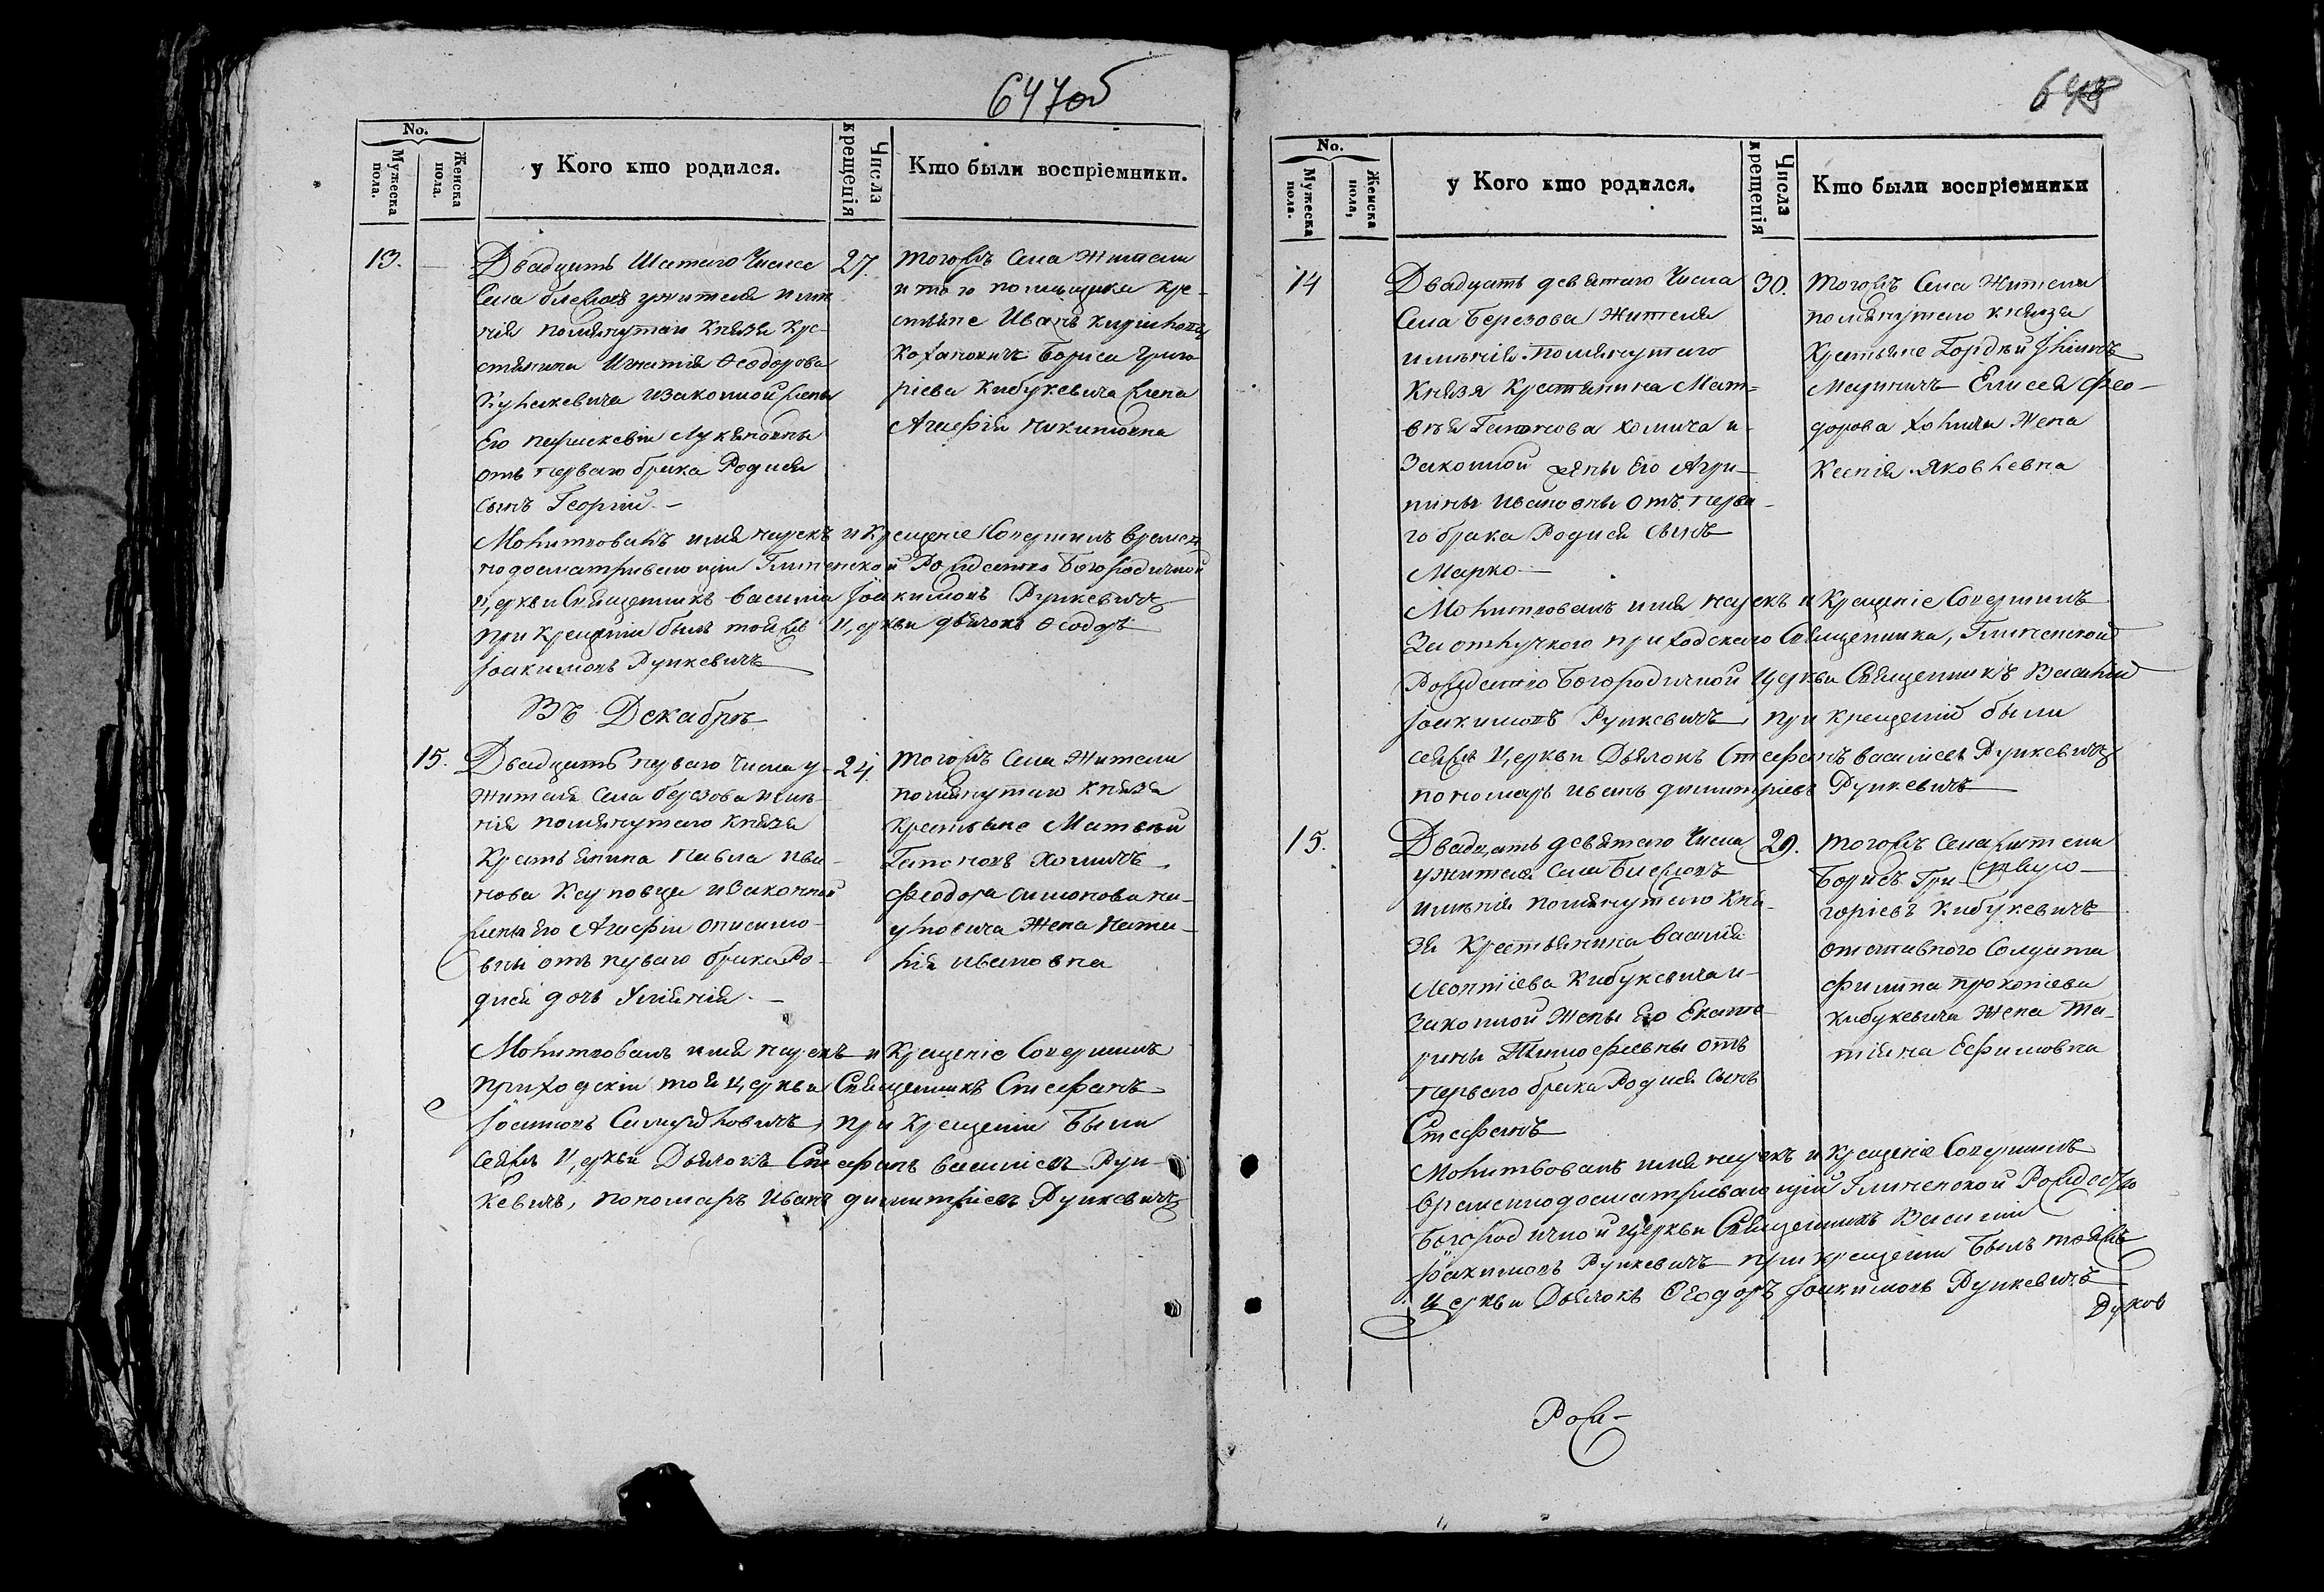 647об
No.
Мужеска пола.
Женска пола.
у Кого кто родился.
Числа крещенія
Кто были воспріемники.
13.
Двадцать Шетаго Числа
Села жителя
нія помянутаго Князя Кре-
стянина Игнатія Ѳеодорова
изаконной жены
Его параскевіи Лукяновны
отъ перваго брака Родися
сынъ Георгій
27.
тогожъ Села Жители
и того помещика кре-
стяне Иванъ
Бориса Григо
ріева Кибукевича жена
Агафія Никитовна
Молитвовалъ имя нарекъ и Крещеніе Совершилъ времен
нодосматривающій Глиненской Рождество Богородичной
Церкви Священникъ Василій Іоакимовъ Рункевичъ
при Крещеніи былъ тояжъ Церкви дьячокъ Ѳеодоръ
Іоакимовъ Рункевичъ
Въ Декабрѣ
15.
Двадцать перваго Числа у
жителя Села березова имѣ-
нія помянутаго Князя
Крестьянина Павла Ива-
нова изаконной
жены его Агафіи Онисимо-
вны отъ перваго брака Ро-
дися дочь Уліянія
24.
тогожъ Села Жители
помянутаго Князя
Крестьяне Матвѣй
Гапоновъ Хомичъ
Феодора Симонова
Жена Ната-
лія ивановна
Молитвовалъ имя нарекъ и Крещеніе Совершилъ
приходскій тоя Церкви Священникъ Стефанъ
при Крещеніи Были
сеяжъ Церкви Дьячокъ Стефанъ василіевъ Рун-
кевичъ, пономарь Иванъ димитріевъ Рункевичъ
648
No.
Мужеска пола.
Женска пола,
у Кого кто родился.
Числа крещенія
Кто были воспріемники
14
Двадцать девятаго Числа
Села Березова Жителя
имѣнія помянутаго
Князя Крестянина Мат-
вѣя Гапонова хомича и
Законной жены Его Агри-
пины Ивановны отъ перва-
го брака Родися сынъ
Марко
30.
тогожъ Села Жители
помянутаго князя
Крестьяне Гордѣй
Елисея Фео-
дорова Жена
Ксенія Яковлевна
Молитвовалъ имя нарекъ и Крещеніе Совершилъ
За отлучкого приходскаго Священника, Глиненской
Рождество Богородичной Церкви Священникъ Василій
Іоакимовъ Рункевичъ, при крещеніи были
сеяжъ Церкви Дьячокъ Стефанъ василіевъ Рункевичъ
пономарь иванъ димитріевъ Рункевичъ
15.
Двадцать девятаго Числа
у жителя села
имѣнія помянутаго Кня-
зя Крестьянина василія
Леонтіева Кибукевича и
законной Жены Его Екате-
рины Тимофеевны отъ
перваго брака Родися сынъ
Стефанъ
29.
тогожъ села жители
Борисъ Гри-
горіевъ Кибукевичъ
отставного Солдата
Филипа прокопіева
кибукевича Жена Та-
тіяна Ефимовна
Молитвовалъ имя нарекъ и крещеніе Совершилъ
временнодосматривающій Глиненской Рождество
Богородичной церкви Священникъ Василій
Іоакимовъ Рункевичъ при крещеніи былъ тояжъ
церкви Дьячокъ Ѳеодоръ Іоакимовъ Рункевичъ